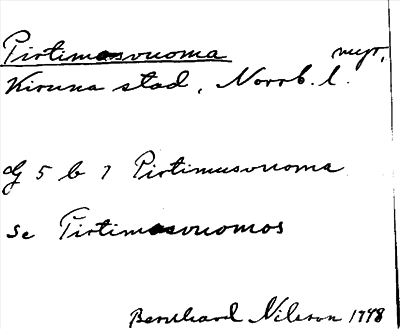 Pirtimasvuoma myr,
Kiruna stad, Norrb. l.
G 5 b 7 Pirtimusvuoma
se Pirtimasvuomos
Bernhard Nilsson 1978